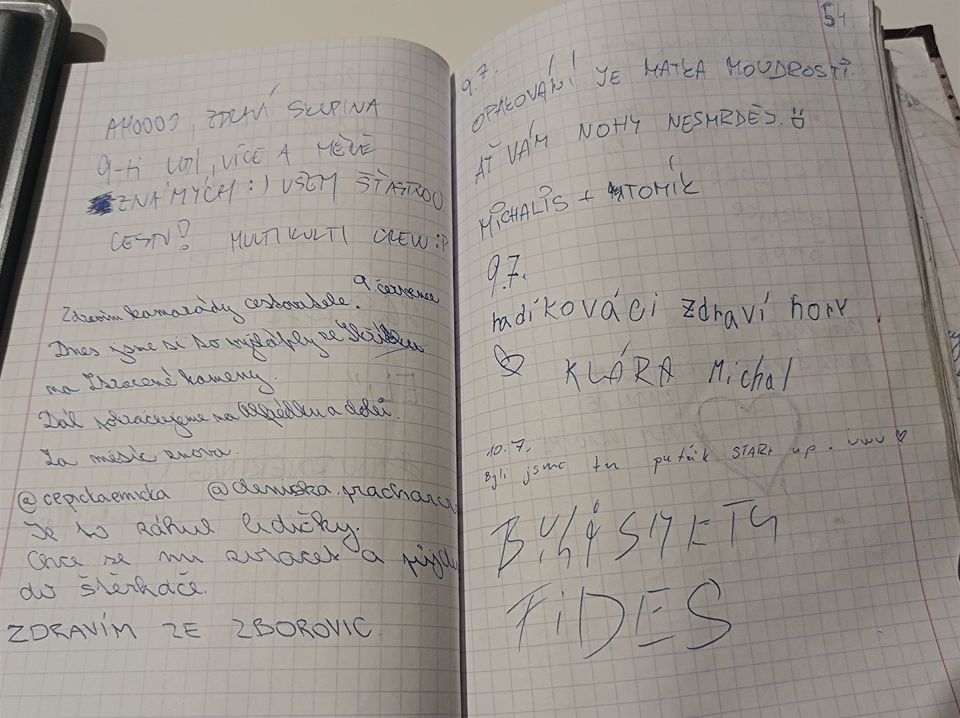 AHOOOJ, ZDRAVÍ SKUPINA
9-ti LIDÍ, VÍCE A MÉNĚ
ZNÁMÝCH :) VŠEM ŠŤASTNOU
CESTU! MULTIKULTI CREW :P
9. července
Zdravím kamarády cestovatele.
Dnes jsme si to vyšláply ze
na Ztracené kameny.
Dál pokračujeme na a dolů.
Za měsíc znova.
@cepickaemicka @deniska.pracharca
Je to záhul lidičky.
Chce se mi zvracet a půjdu
do štěrkáče.
ZDRAVÍM ZE ZBOROVIC.
54
9.7.
OPAKOVÁNÍ JE MATKA MOUDROSTI.
AŤ VÁM NOHY NESMRDĚJ.
MICHALIS + ATOMÍK
9.7.
radíkováci zdraví hory
KLÁRA Michal
10.7.
Byli jsme tu puťák START up. uwu ♡
BYLÝ SMETY
FIDES